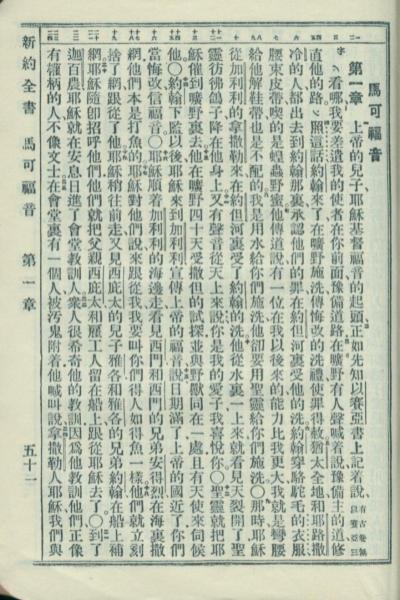 馬可福音
第一章 上帝的兒子耶穌基督福音的起頭正如先知以賽亞書上記着說
字〻看哪我要差遣我的使者在你前面豫備道路在曠野有人聲喊着說豫備主的道修
直他的路〻照這話約翰來了在曠野施洗傳悔改的洗禮使罪得赦猶太全地和耶路撒
冷的人都出去到約翰那裏承認他們的罪在約但河裏受他的洗約翰穿駱駝毛的衣服
腰束皮帶喫的是蝗蟲野蜜他傳道說有一位在我以後來的能力比我更大我就是彎腰
給他解鞋帶也是不配的我是用水給你們施洗他卻要用聖靈給你們施洗〇那時耶穌
從加利利的拿撒勒來在約但河裏受了約翰的洗他從水裏一上來就看見天裂開了聖
靈彷彿鴿子降在他身上又有聲音從天上來說你是我的愛子我喜悅你〇聖靈就把耶
穌催到曠野裏去他在曠野四十天受撒但的試探並與野獸同在一處且有天使來伺候
他〇約翰下監以後耶穌來到加利利宣傳上帝的福音說日期滿了上帝的國近了你們
當悔改信福音〇耶穌順着加利利的海邊走看見西門和西門的兄弟安得烈在海裏撒
網他們本是打魚的耶穌對他們說來跟從我我要叫你們得人如得魚一樣他們就立刻
捨了網跟從了他耶穌稍往前走又見西庇太的兒子雅各和雅各的兄弟約翰在船上補
網耶穌隨卽招呼他們他們就把父親西庇太和雇工人留在船上跟從耶穌去了〇到了
迦百農耶穌就在安息日進了會堂教訓人衆人很希奇他的教訓因爲他教訓他們正像
有權柄的人不像文士在會堂裏有一個人被污鬼附着他喊叫說拿撒勒人耶穌我們與
新約全書 馬可福音 第一章 五十一